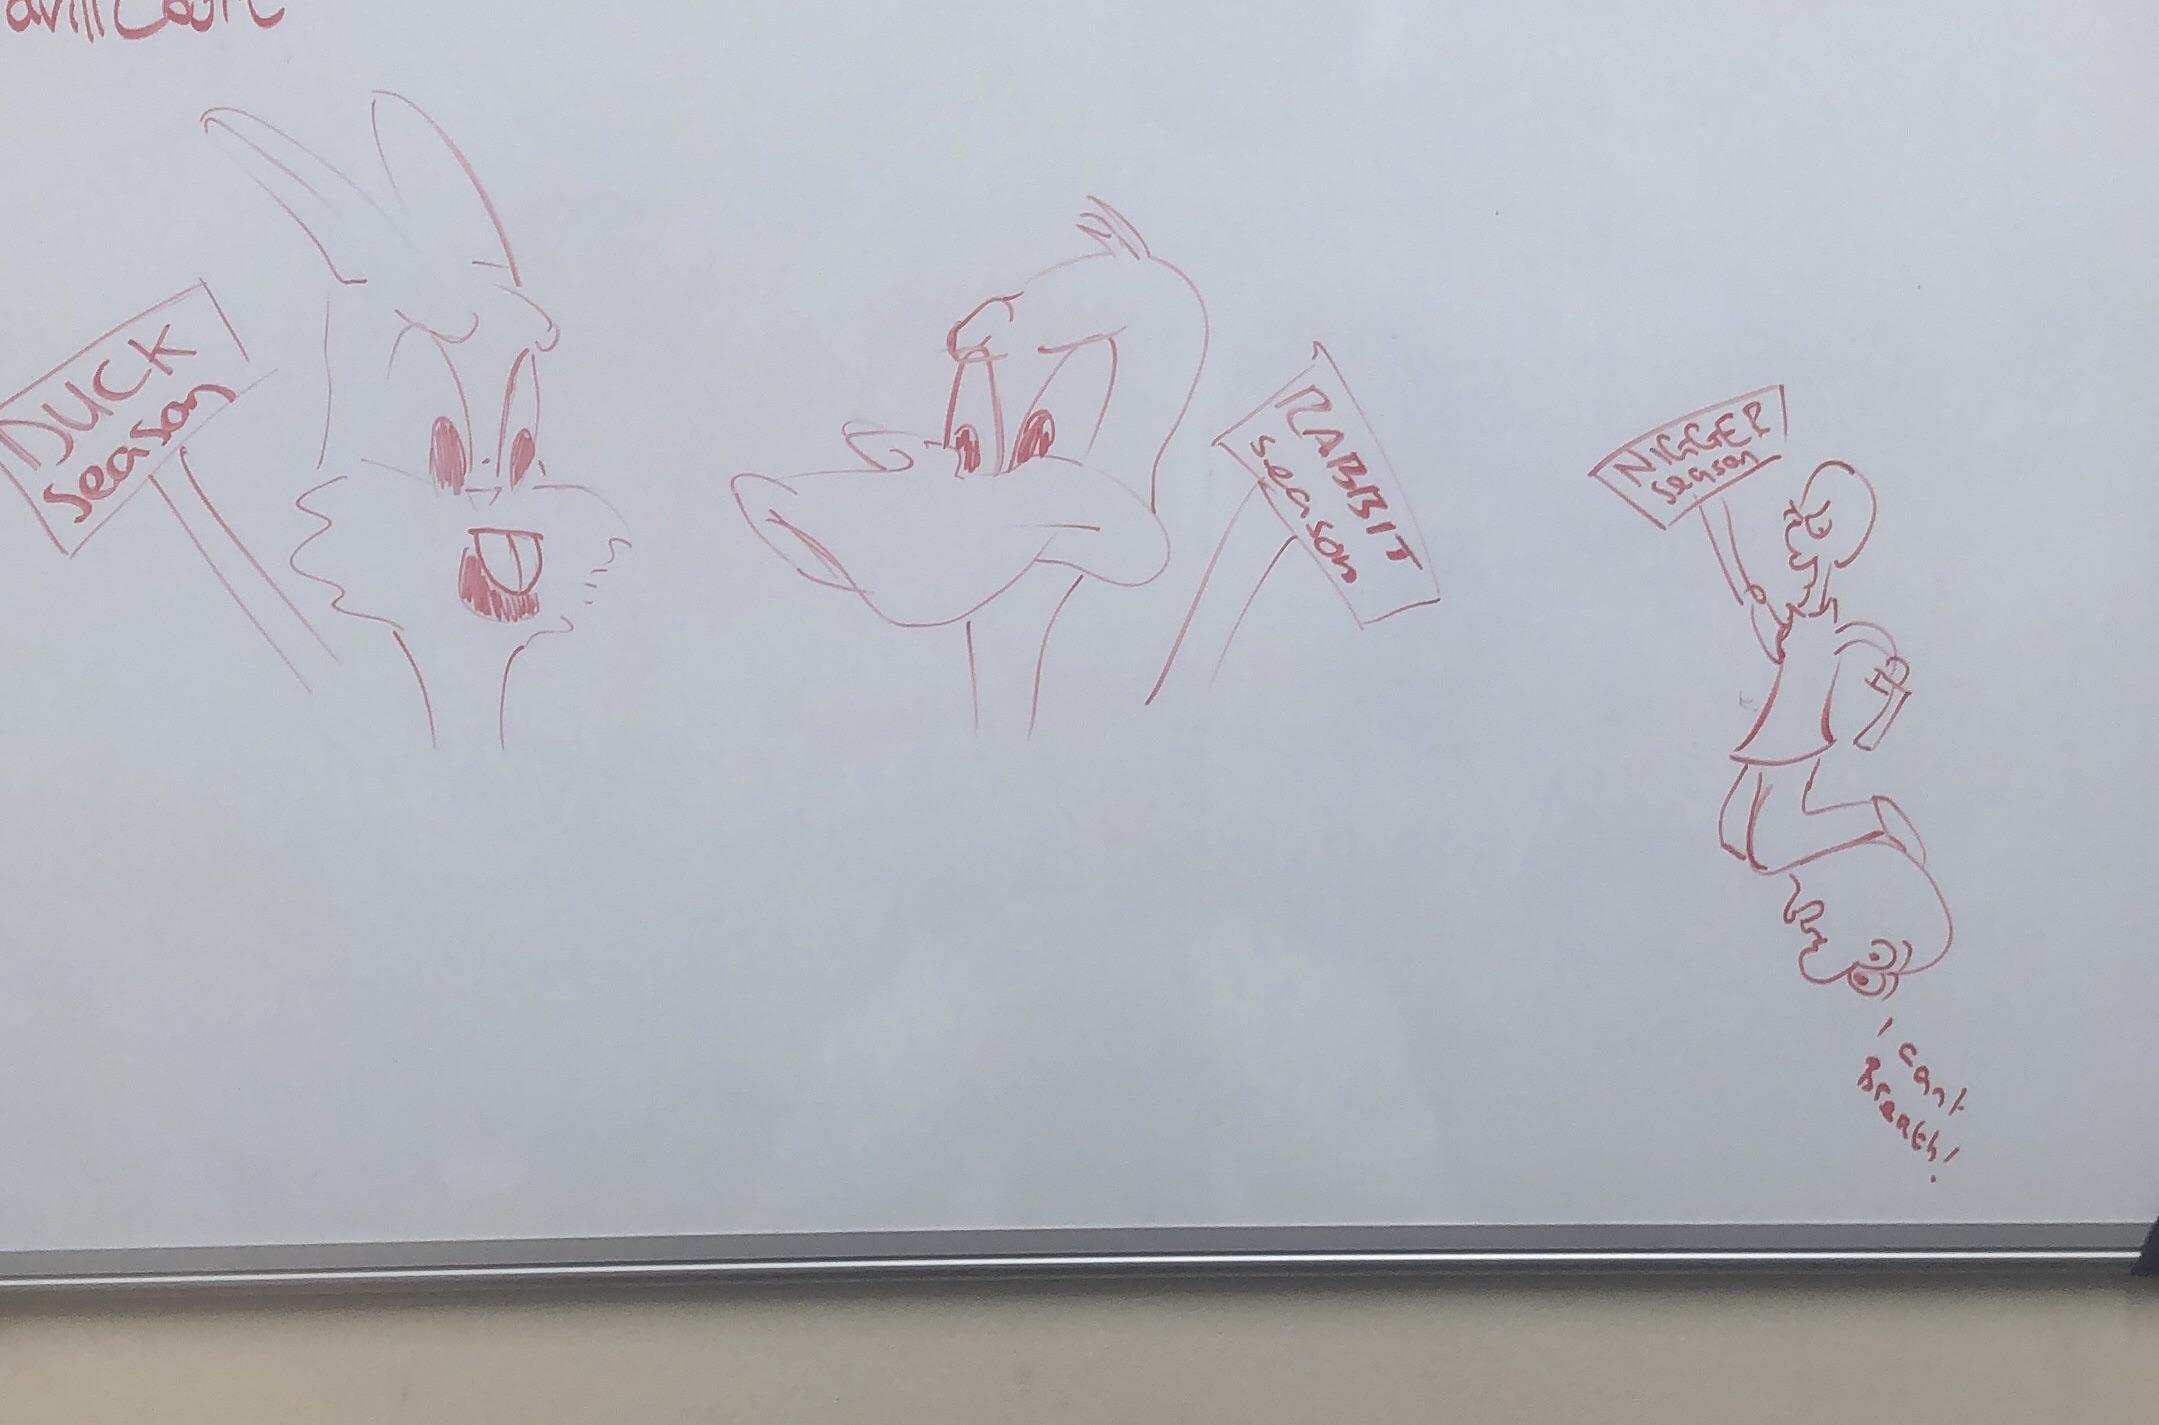 DUCK
season
RABBIT
season
NIGGER
season
I cant
Breath!